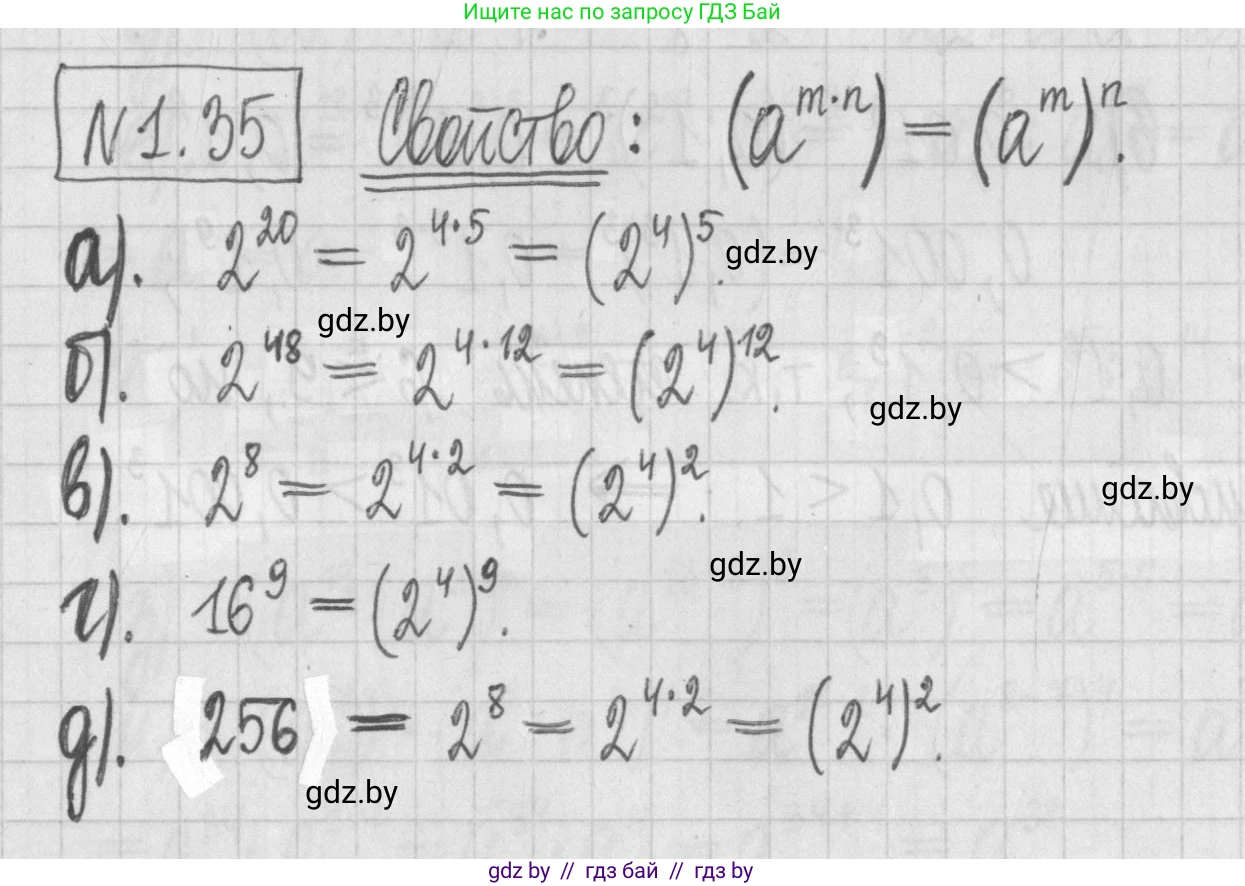 Ищите нас по запросу ГДЗ Бай
N 1.35 Свойство: (a^{m·n}) = (a^m)^n.
а). 2^{20} = 2^{4·5} = (2^4)^5. gdz.by
gdz.by
б). 2^{48} = 2^{4·12} = (2^4)^{12}.
gdz.by
в). 2^8 = 2^{4·2} = (2^4)^2.
gdz.by
gdz.by
г). 16^9 = (2^4)^9.
д). 256 = 2^8 = 2^{4·2} = (2^4)^2.
gdz.by
gdz by // гдз бай // гдз by